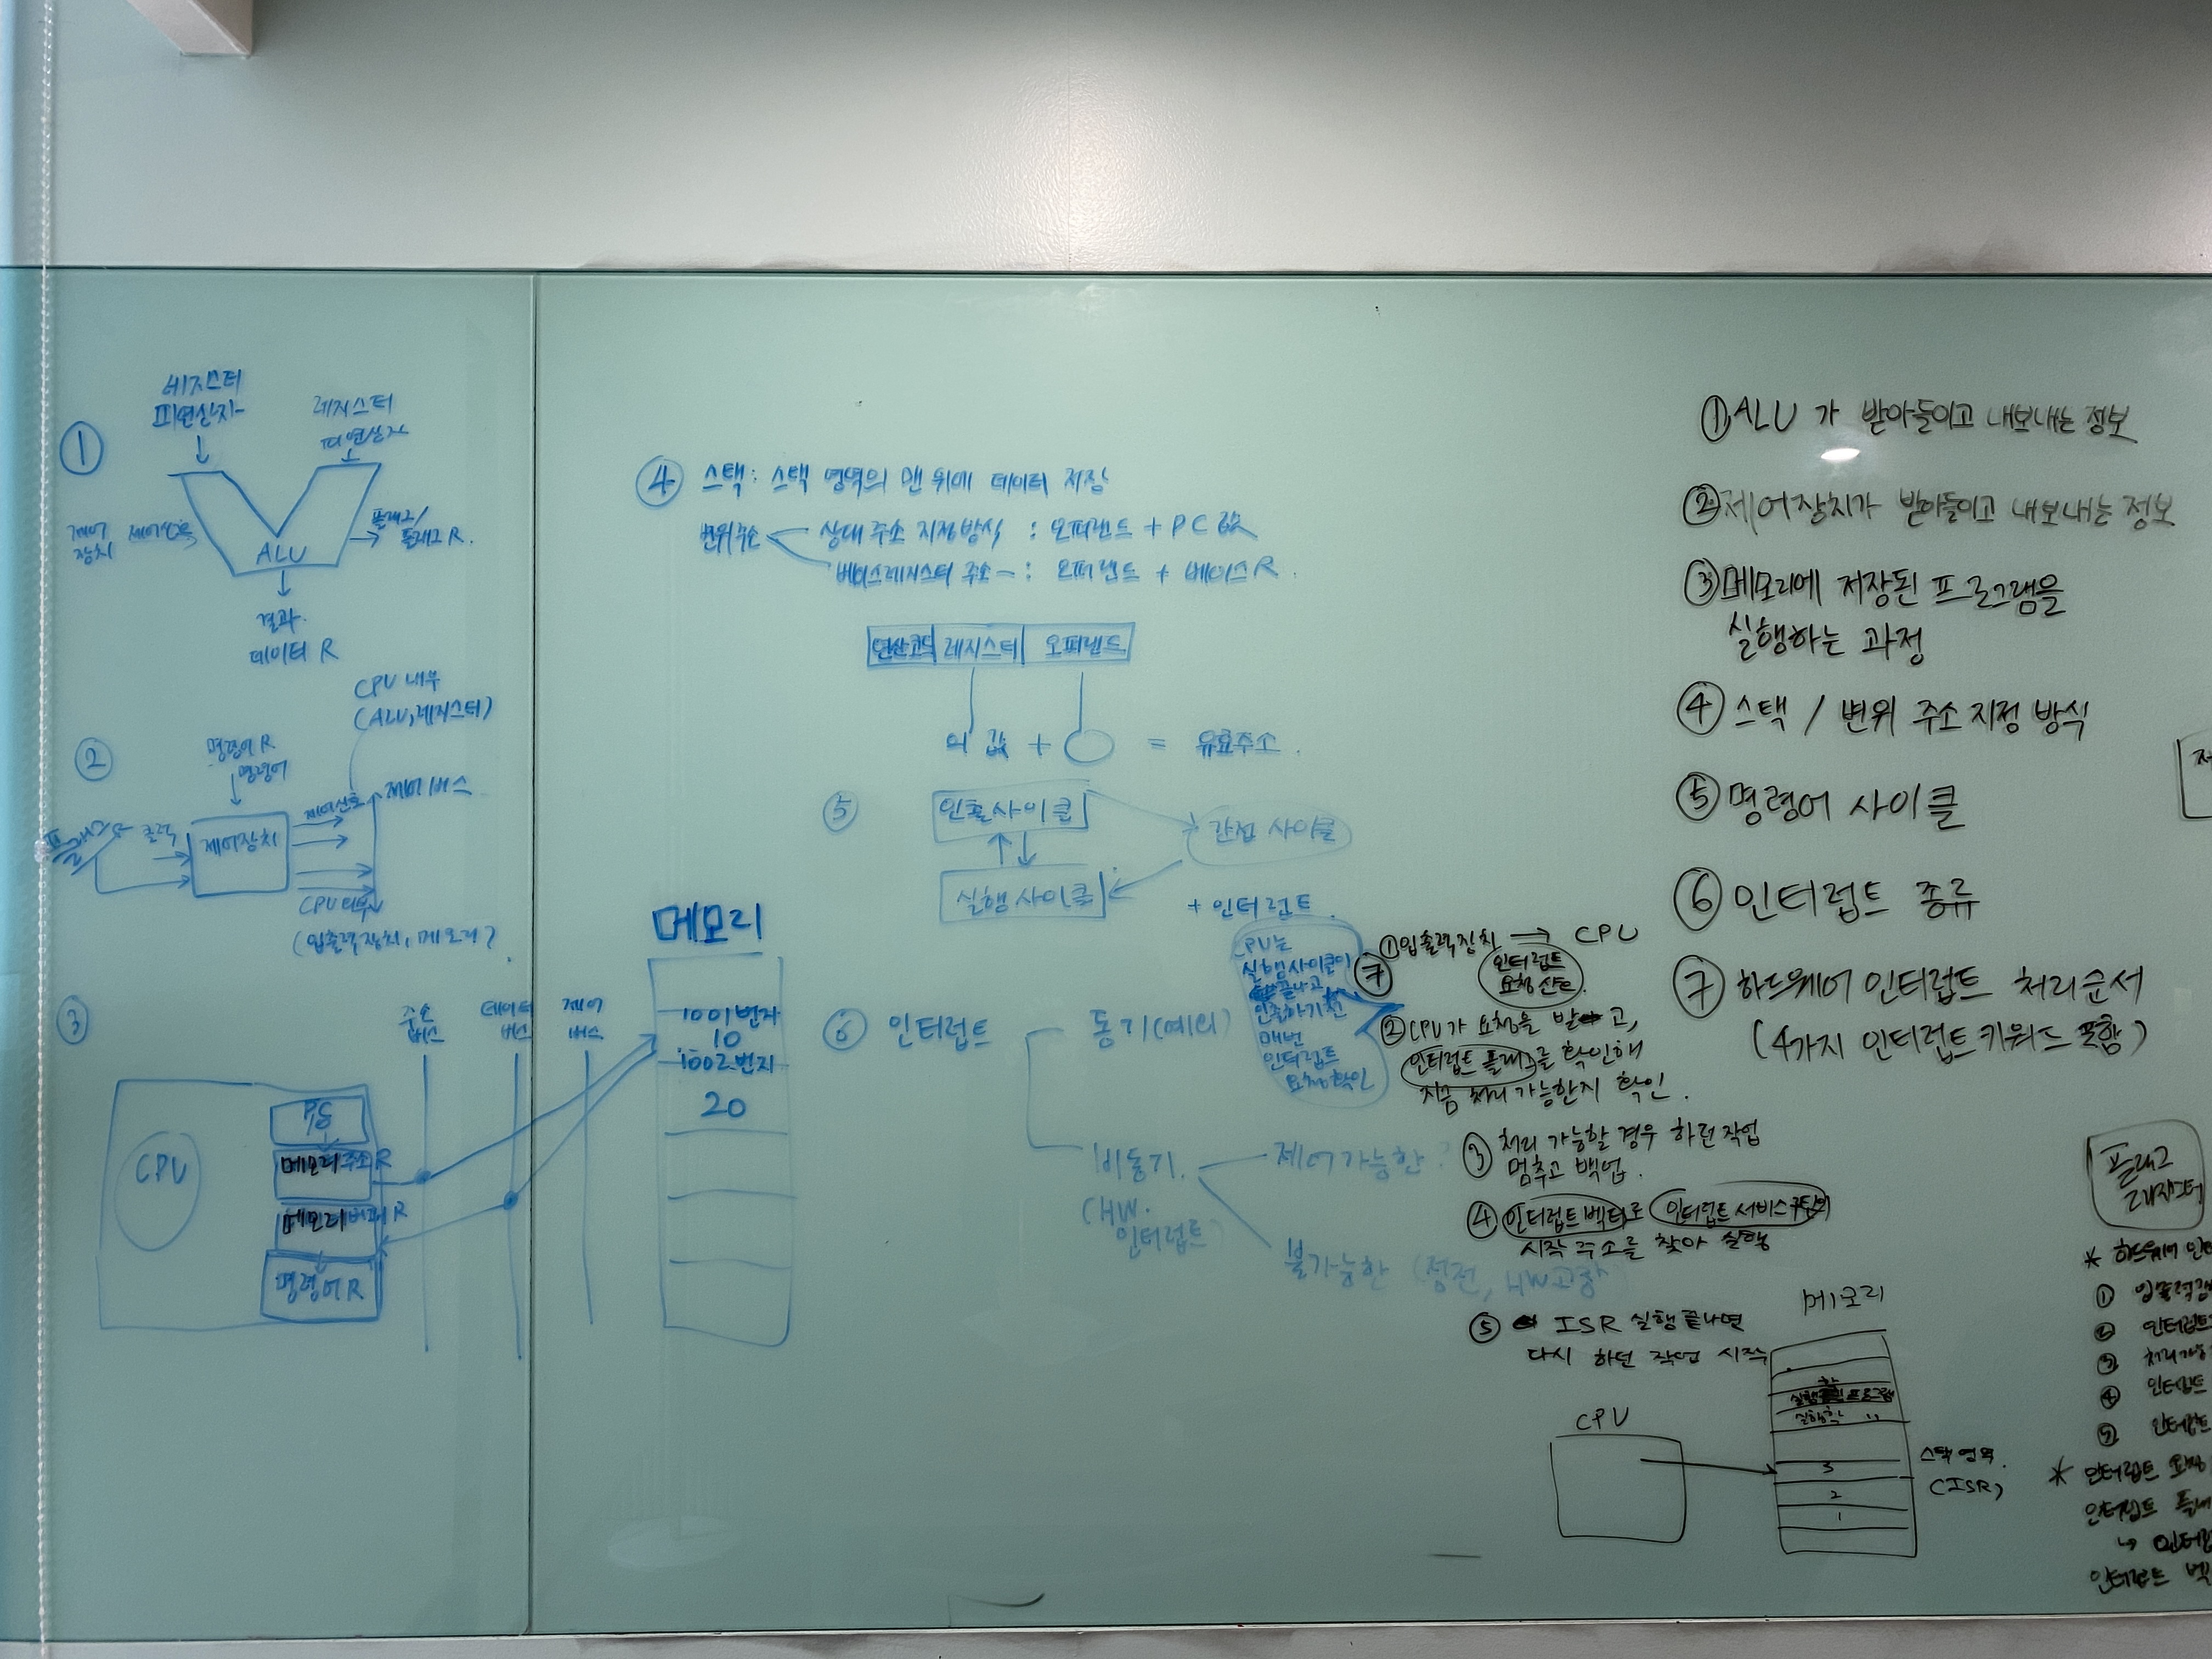 ①
레지스터
피연산자
레지스터
피연산자
제어
장치
ALU
플래그/
플래그 R.
결과
데이터 R
②
CPU 내부
(ALU, 레지스터)
명령어 R
명령어
클럭
제어장치
제어신호
제어버스
CPU 외부
(입출력장치, 메모리)
③
주소
버스
데이터
버스
제어
버스
CPU
메모리 주소 R
메모리 버퍼 R
명령어 R
메모리
1001번지
10
1002번지
20
④ 스택 : 스택 영역의 맨 위에 데이터 저장
변위주소
상대 주소 지정방식 : 오퍼랜드 + PC 값
베이스레지스터 주소 ㅡ : 오퍼랜드 + 베이스 R.
연산코드 레지스터 오퍼랜드
의 값 + = 유효주소.
⑤
인출사이클
간접 사이클
실행사이클
+ 인터럽트
CPU는
실행사이클이
끝나고
인출하기 전
매번
인터럽트
요청확인
⑥ 인터럽트
동기(예외)
비동기.
(HW.
인터럽트)
제어가능한
불가능한 (정전, HW고장)
⑦
① 입출력장치 → CPU
인터럽트
요청 신호
② CPU가 요청을 받고,
인터럽트 플래그를 확인해
지금 처리 가능한지 확인.
③ 처리 가능할 경우 하던 작업
멈추고 백업.
④ 인터럽트 벡터로 인터럽트 서비스 루틴의
시작 주소를 찾아 실행
⑤ ISR 실행 끝나면
다시 하던 작업 시작
메모리
CPU
3
2
1
스택 영역.
(ISR)
① ALU 가 받아들이고 내보내는 정보
② 제어장치가 받아들이고 내보내는 정보
③ 메모리에 저장된 프로그램을
실행하는 과정
④ 스택 / 변위 주소 지정 방식
⑤ 명령어 사이클
⑥ 인터럽트 종류
⑦ 하드웨어 인터럽트 처리순서
(4가지 인터럽트 키워드 포함)
플래그
레지스터
* 하드웨어
①
② 인터럽트
③ 처리가능
④ 인터럽트
⑤ 인터럽트
* 인터럽트 요청
인터럽트
↳
인터럽트